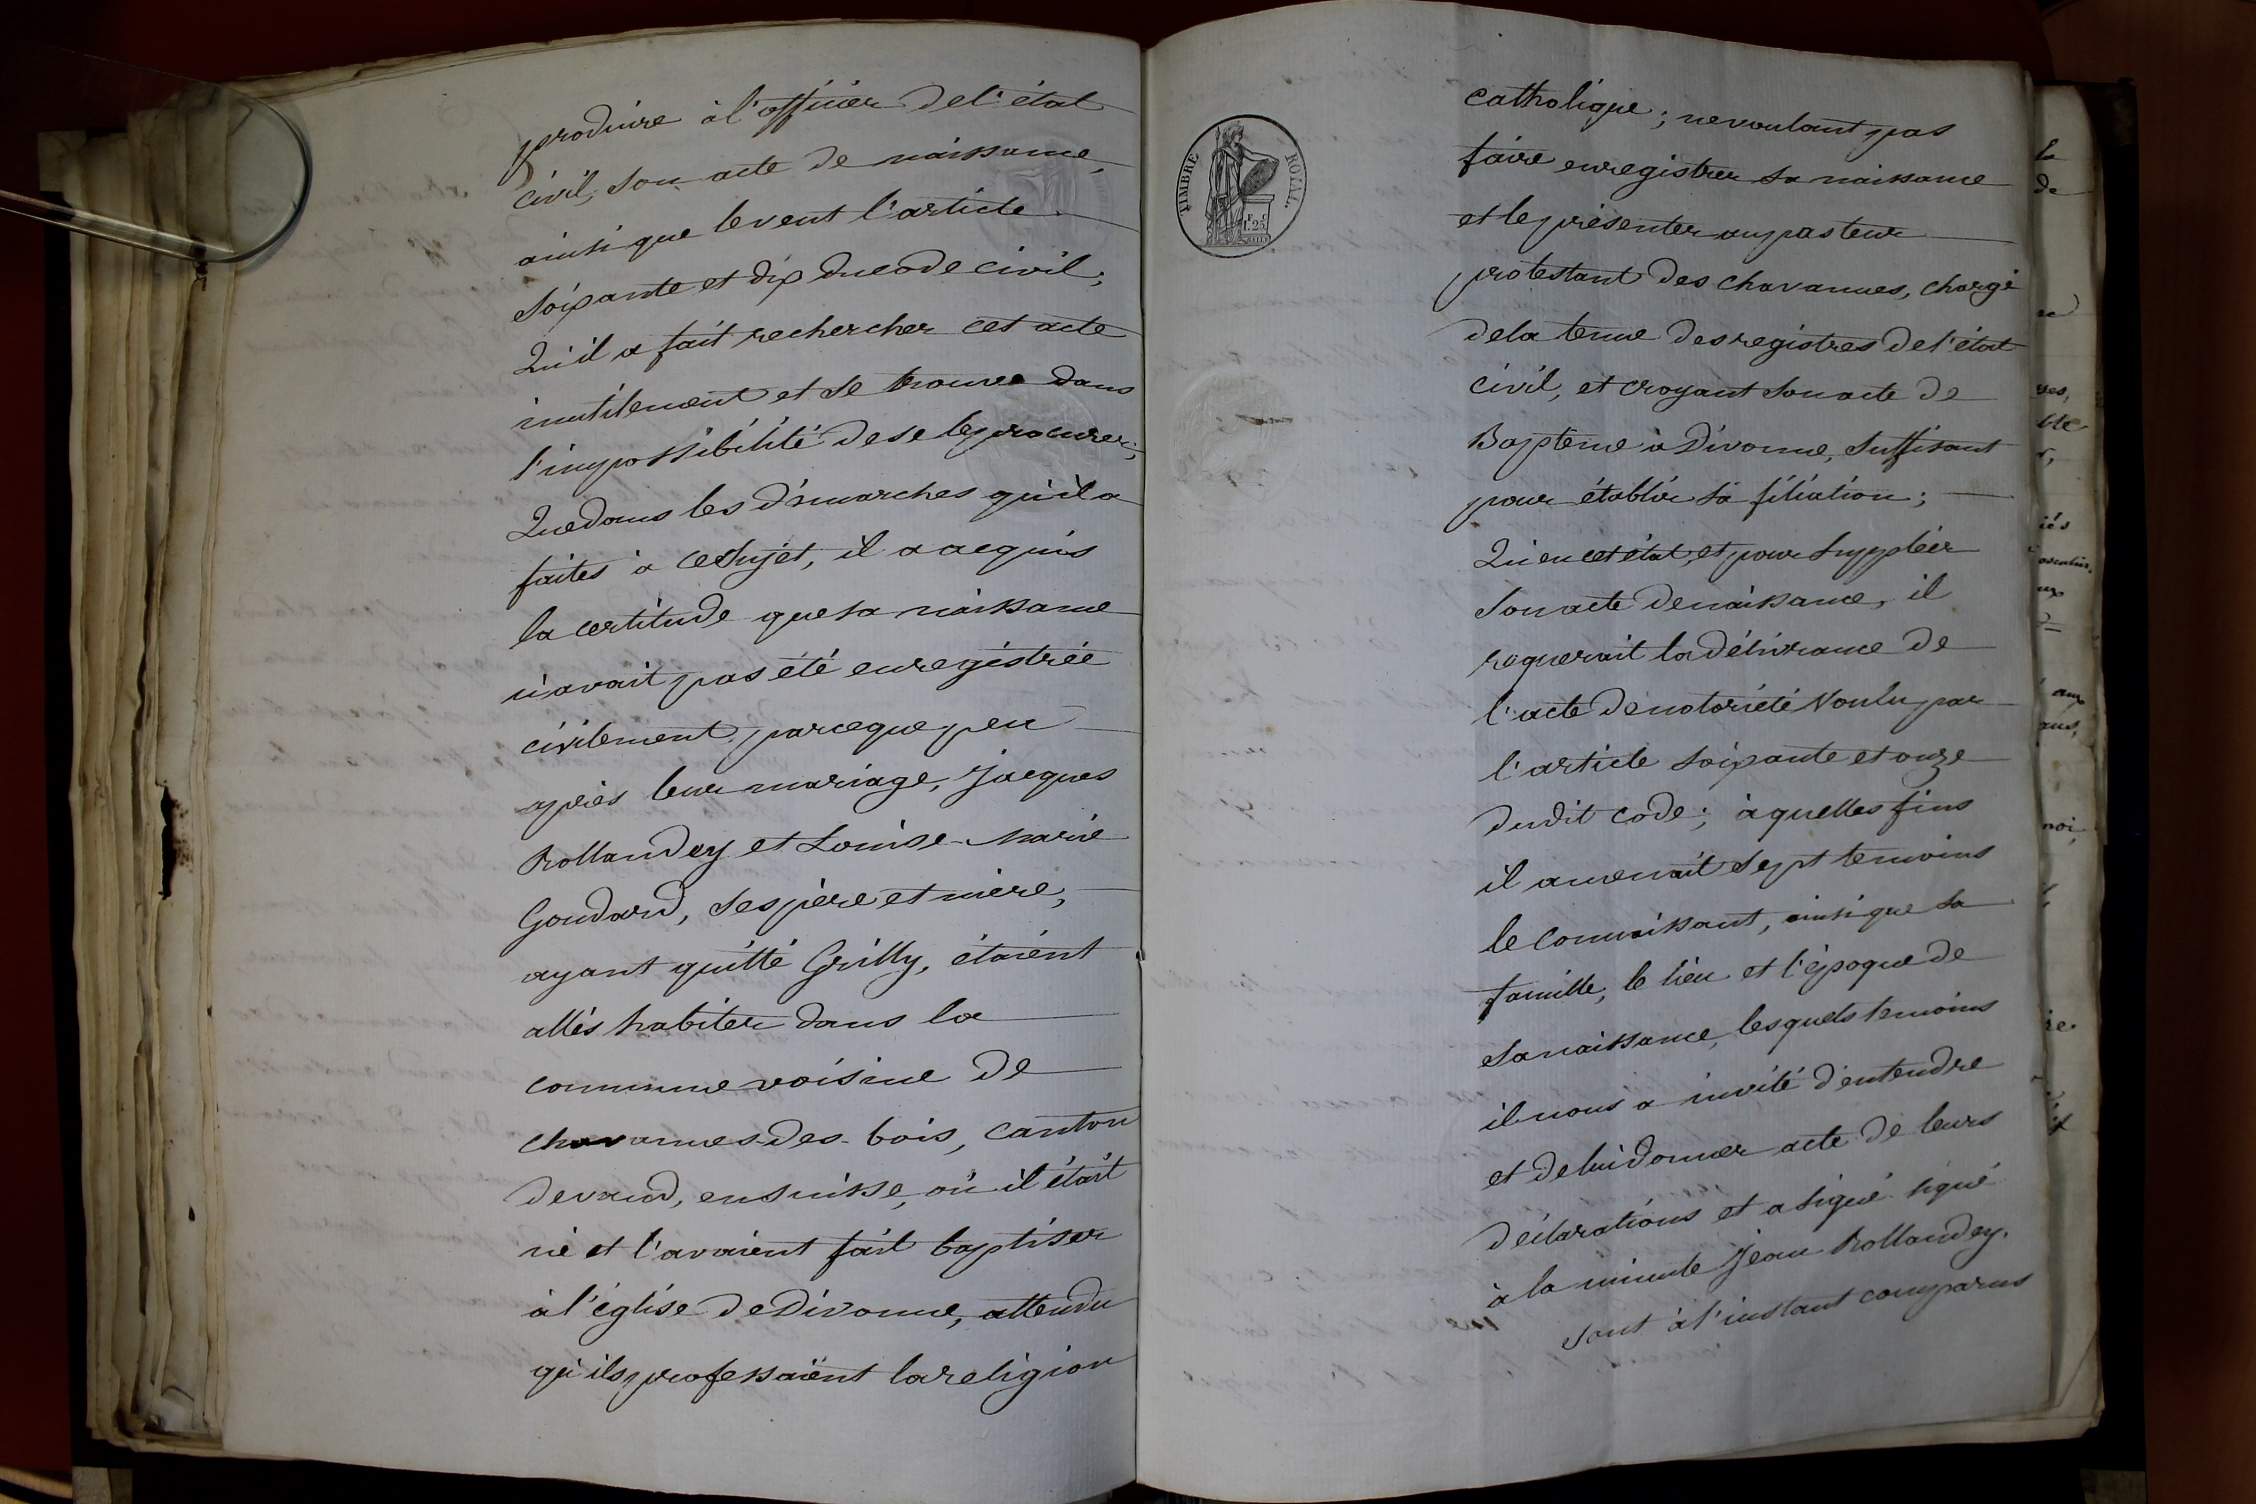 produire à l'officier de l'état
civil, son acte de naissance,
ainsi que le veut l'article
soixante et dix du code civil;
Qu'il a fait rechercher cet acte
inutilement et se trouve dans
l'impossibilité de se le procurer;
Que dans les démarches qu'il a
faites à ce sujet, il a acquis
la certitude que sa naissance
n'avait pas été enregistrée
civilement, parceque peu
après leur mariage, Jacques
Rollandey et Louise-Marie
Goudard, ses père et mère,
ayant quitté Grilly, étaient
allés habiter dans la
commune voisine de
Chavannes-des-bois, canton
de vaud, en suisse, où il était
né et l'avaient fait baptiser
à l'église de Divonne, attendu
qu'ils professaient la religion
TIMBRE ROYAL.
F. C.
1.25
catholique; ne voulant pas
faire enregistrer sa naissance
et le présenter au pasteur
protestant des chavannes, chargé
de la tenue des registres de l'état
civil, et croyant son acte de
Baptême à Divonne, suffisant
pour établir sa filiation;
Qu'en cet état, et pour suppléer
son acte de naissance, il
requerait la délivrance de
l'acte de notoriété voulu par
l'article soixante et onze
dudit code; à quelles fins
il amenait sept temoins
le connaissant, ainsi que sa
famille, le lieu et l'époque de
sa naissance, lesquels temoins
il nous a invité d'entendre
et de lui donner acte de leurs
déclarations et a signé signé
à la minute Jean Rollandey.
sont à l'instant comparus